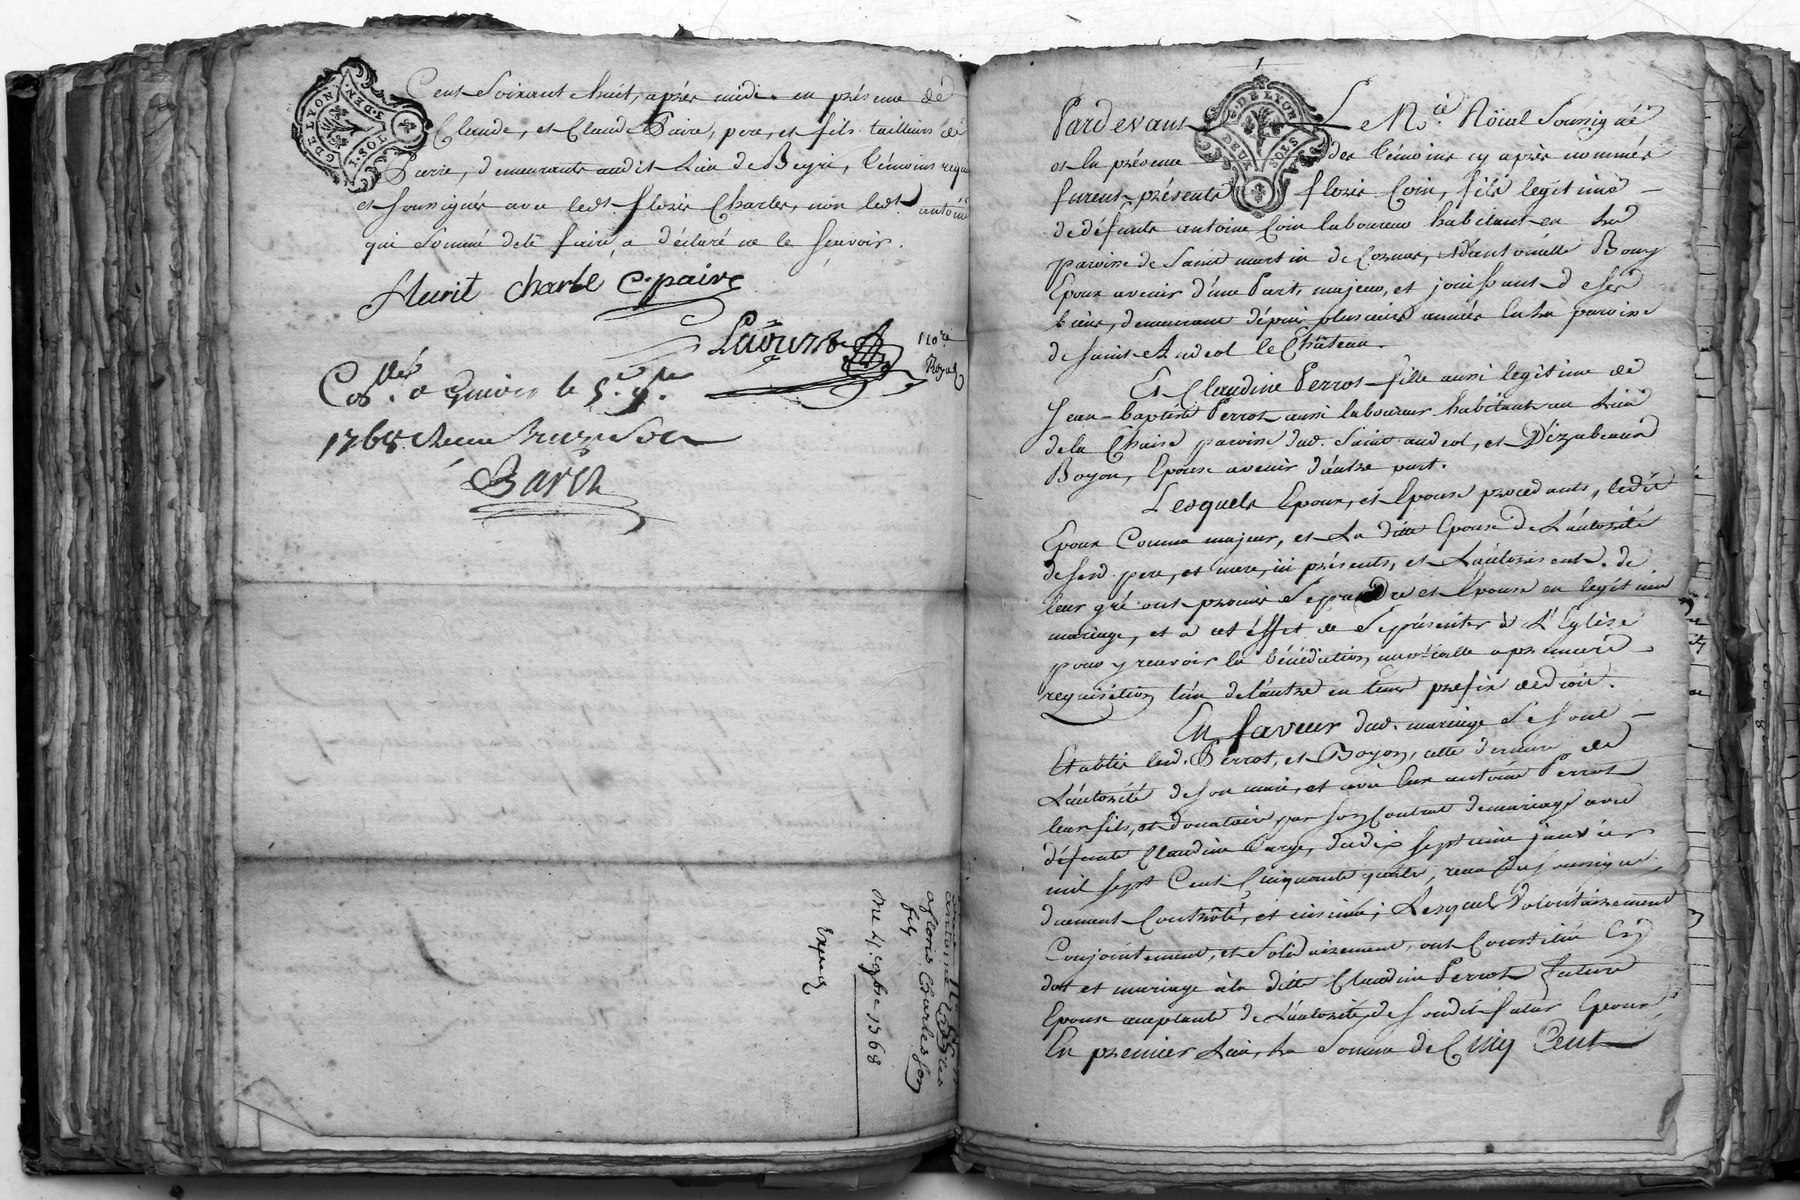 G. DE LYON
1. SOL 2. DEN.
Cent Soixant huit, après midi. en présence de
Claude, et Claude Paire, pere, et fils tailleurs de
Pierre, demeurants audit Lieu de témoins requis
et soussignés avec ledt. floris Charles, non ledt. antoine
qui sommé de le faire, a déclaré ne le sçavoir.
flurit charle C. paire
nore
Royal
Coslé. a le 5.e 9.bre
1768
Barin
floris Charles
Du 4. 9bre 1768
Expédié
G. DE LYON
SOLS DEN
Pardevant Le Nre. Röial Soussigné
et en présence des témoins cy après nommés
furent présents floris Coin, fils legitime
de défunts antoine Coin laboureur habitant en la
paroisse de Saint martin de Cornas, et d'antoinette Bony
Epoux avenir d'une Part, majeur, et jouissant de ses
biens, demeurant dépuis plusieurs années en la paroisse
de Saint Andeol le Château.
Et Claudine Perrot fille aussi legitime de
Jean-baptiste Perrot aussi laboureur habitant au Lieu
de la Chaise paroisse dud. Saint andeol, et D'izabeaud
Boyon, Epouse avenir d'autre part.
Lesquels Epoux, et Epouse procedants, ledit
Epoux Comme majeur, et La ditte Epouse de L'autorité
de sesd. pere, et mere, ici présents, et L'autorisants. de
leur gré ont promis Se prendre et Epouser en legitime
mariage, et à cet éffet de Se présenter à L'Eglise
pour y recevoir la bénédiction nuptialle a premiere
requisition l'un de l'autre en tems préfix de droit.
En faveur dud. mariage Se Sont
Etablis lesd. Perrot, et Boyon, cette derniere de
L'autorité de son mari, et avec Eux antoine Perrot
leur fils, et donataire par son Contrat de mariage avec
défunte Claudine du dix septieme janvier
mil sept Cent Cinquante quatre, reçu
duement Controllé, et insinué; Lesquels Volontairement
Conjointement, et Solidairement, ont Constitué En
dot et mariage à la ditte Claudine Perrot future
Epouse acceptante de L'autorité de Son dit futur Epoux
En premier Lieu, La Somme de Cinq Cent